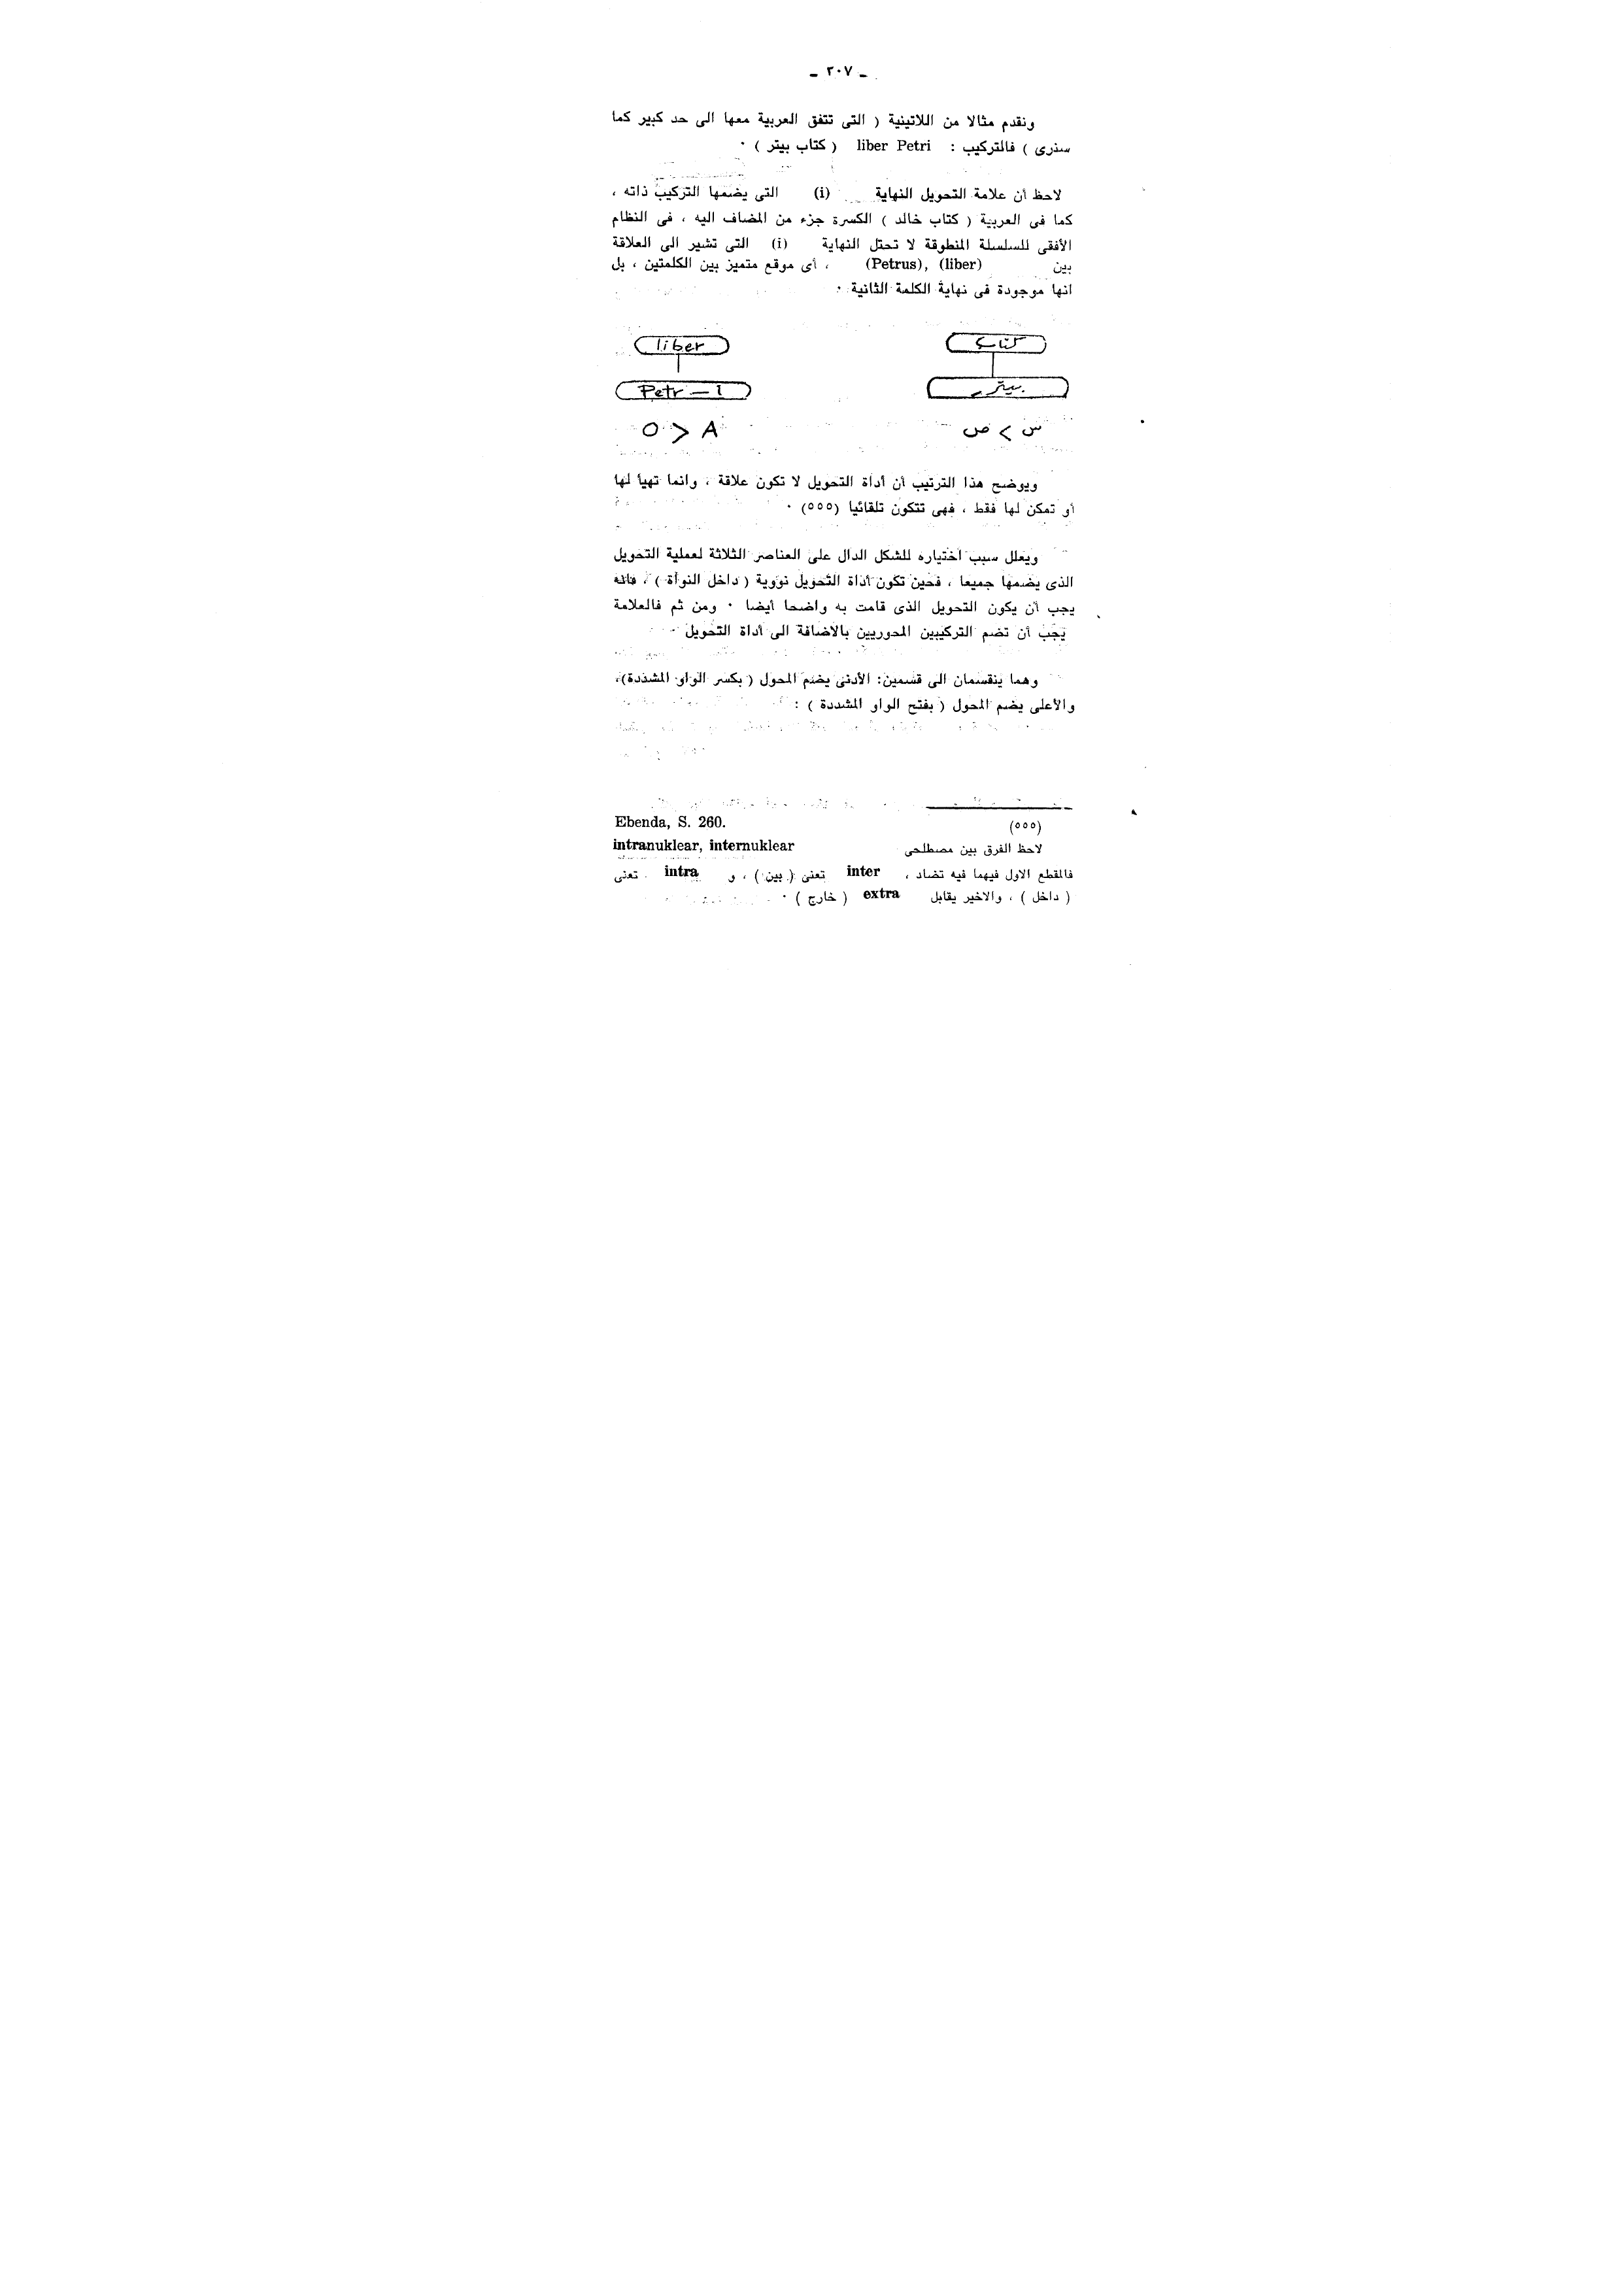 ـ ٢٠٧ ـ
ونقدم مثالا من اللاتينية ( التى تتفق العربية معها الى حد كبير كما
سنرى ) فالتركيب : liber Petri ( كتاب بيتر ) ٠
لاحظ أن علامة التحويل النهاية (i) التى يضمها التركيب ذاته ،
كما فى العربية ( كتاب خالد ) الكسرة جزء من المضاف اليه ، فى النظام
الأفقى للسلسلة المنطوقة لا تحتل النهاية (i) التى تشير الى العلاقة
بين (Petrus), (liber) ، أى موقع متميز بين الكلمتين ، بل
انها موجودة فى نهاية الكلمة الثانية ٠
كتاب liber
بيتر Petr – I
س > ص O > A
ويوضح هذا الترتيب أن أداة التحويل لا تكون علاقة ، وانما تهيأ لها
أو تمكن لها فقط ، فهى تتكون تلقائيا (٥٥٥) ٠
ويعلل سبب اختياره للشكل الدال على العناصر الثلاثة لعملية التحويل
الذى يضمها جميعا ، فحين تكون أداة التحويل نووية ( داخل النواة ) ، فانه
يجب أن يكون التحويل الذى قامت به واضحا أيضا ٠ ومن ثم فالعلامة
يجب أن تضم التركيبين المحوريين بالاضافة الى أداة التحويل ٠
وهما ينقسمان الى قسمين: الأدنى يضم المحول ( بكسر الواو المشددة)،
والأعلى يضم المحول ( بفتح الواو المشددة ) :
(٥٥٥) Ebenda, S. 260.
لاحظ الفرق بين مصطلحى intranuklear, internuklear
فالمقطع الاول فيهما فيه تضاد ، inter تعنى ( بين ) ، و intra تعنى
( داخل ) ، والاخير يقابل extra ( خارج ) ٠